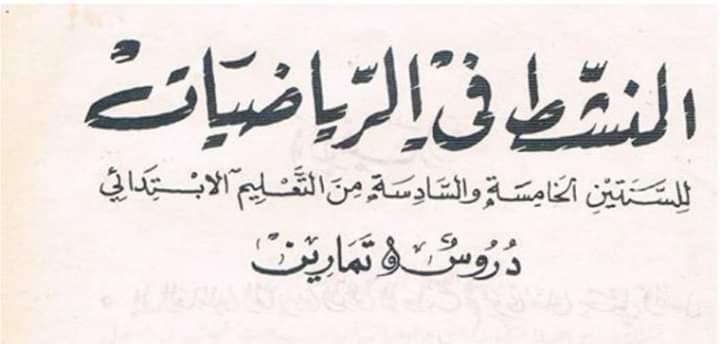 المنشّط في الرّياضيات
للسَّنَتَيْنِ الخَامِسَةِ والسَّادِسَةِ مِنَ التَّعْلِيمِ الابْتِدَائي
دُرُوسٌ وَ تَمَارِينٌ